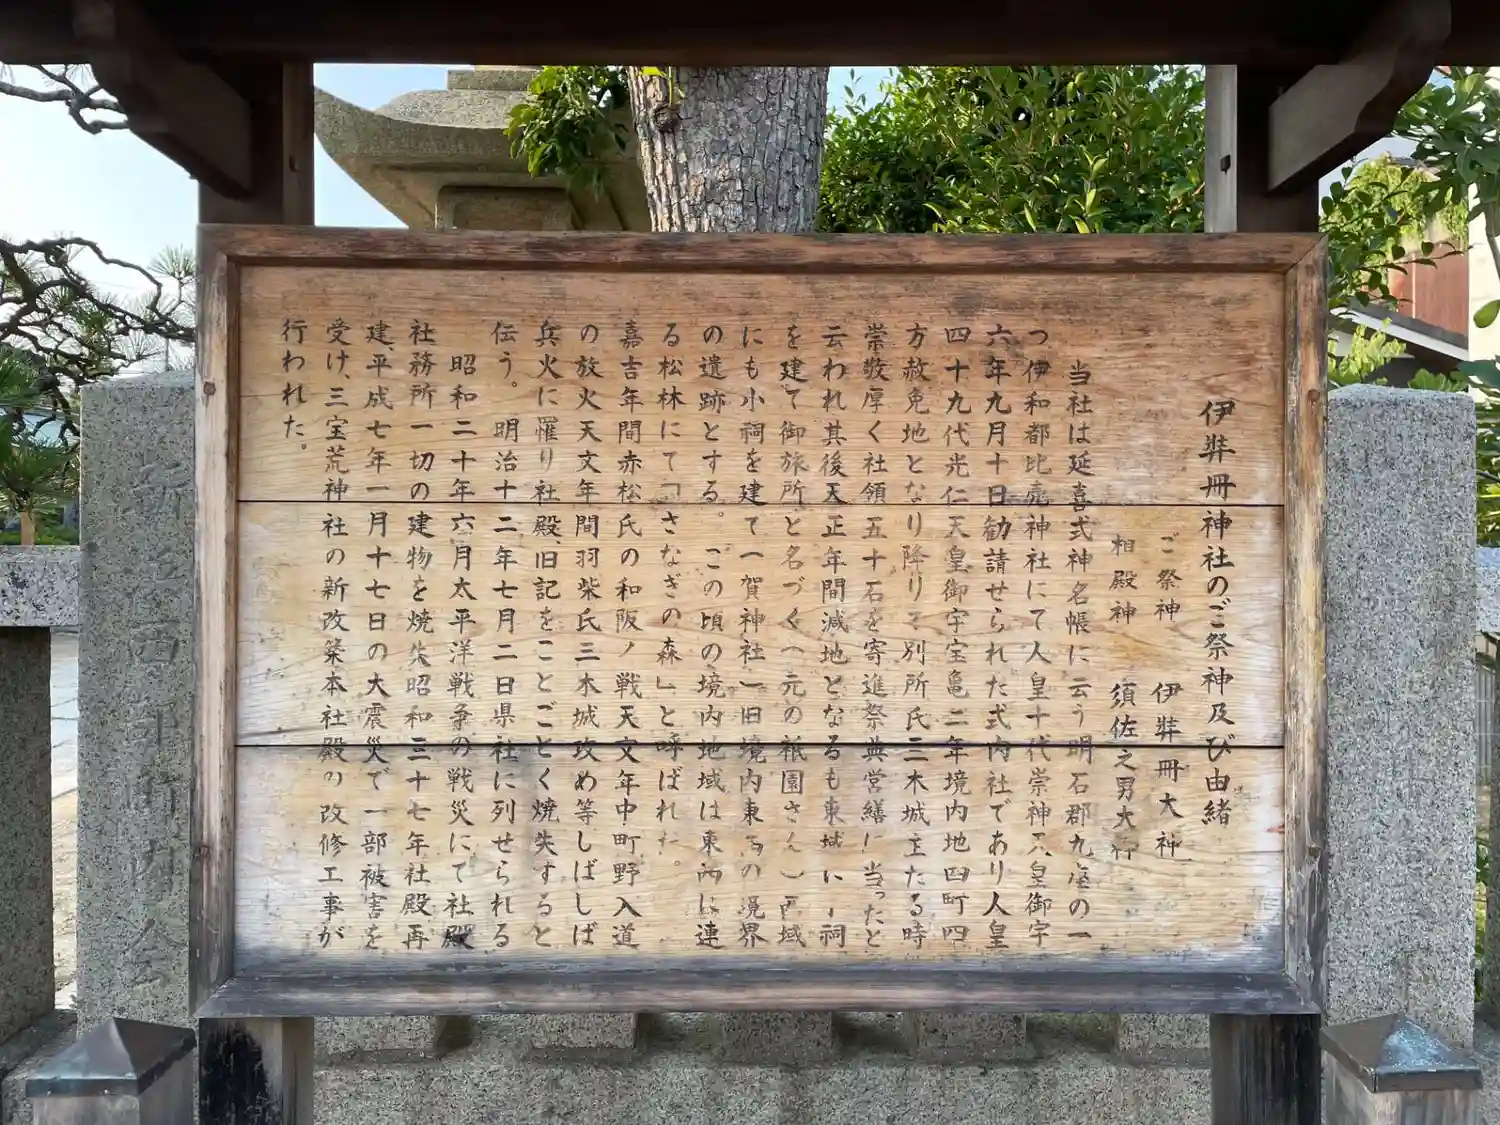 伊弉冊神社のご祭神及び由緒
ご祭神 伊弉冊大神
相殿神 須佐之男大神
当社は延喜式神名帳に云う明石郡九座の一
つ伊和都比売神社にて人皇十代崇神天皇御宇
六年九月十日勧請せられた式内社であり人皇
四十九代光仁天皇御宇宝亀二年境内地四町四
方赦免地となり降りて別所氏三木城主たる時
崇敬厚く社領五十石を寄進祭典営繕に当ったと
云われ其後天正年間減地となるも東域い小祠
を建て御旅所と名づく(元の祇園さん)西域
にも小祠を建て一賀神社一旧境内東西の境界
の遺跡とする。この頃の境内地域は東西に連
る松林にて「さなぎの森」と呼ばれた。
嘉吉年間赤松氏の和阪ノ戦天文年中町野入道
の放火天文年間羽柴氏三木城攻め等しばしば
兵火に罹り社殿、旧記をことごとく焼失すると
伝う。明治十二年七月二日県社に列せられる
昭和二十年六月太平洋戦争の戦災にて社殿
社務所一切の建物を焼失昭和三十七年社殿再
建、平成七年一月十七日の大震災で一部被害を
受け、三宝荒神社の新改築本社殿の改修工事が
行われた。